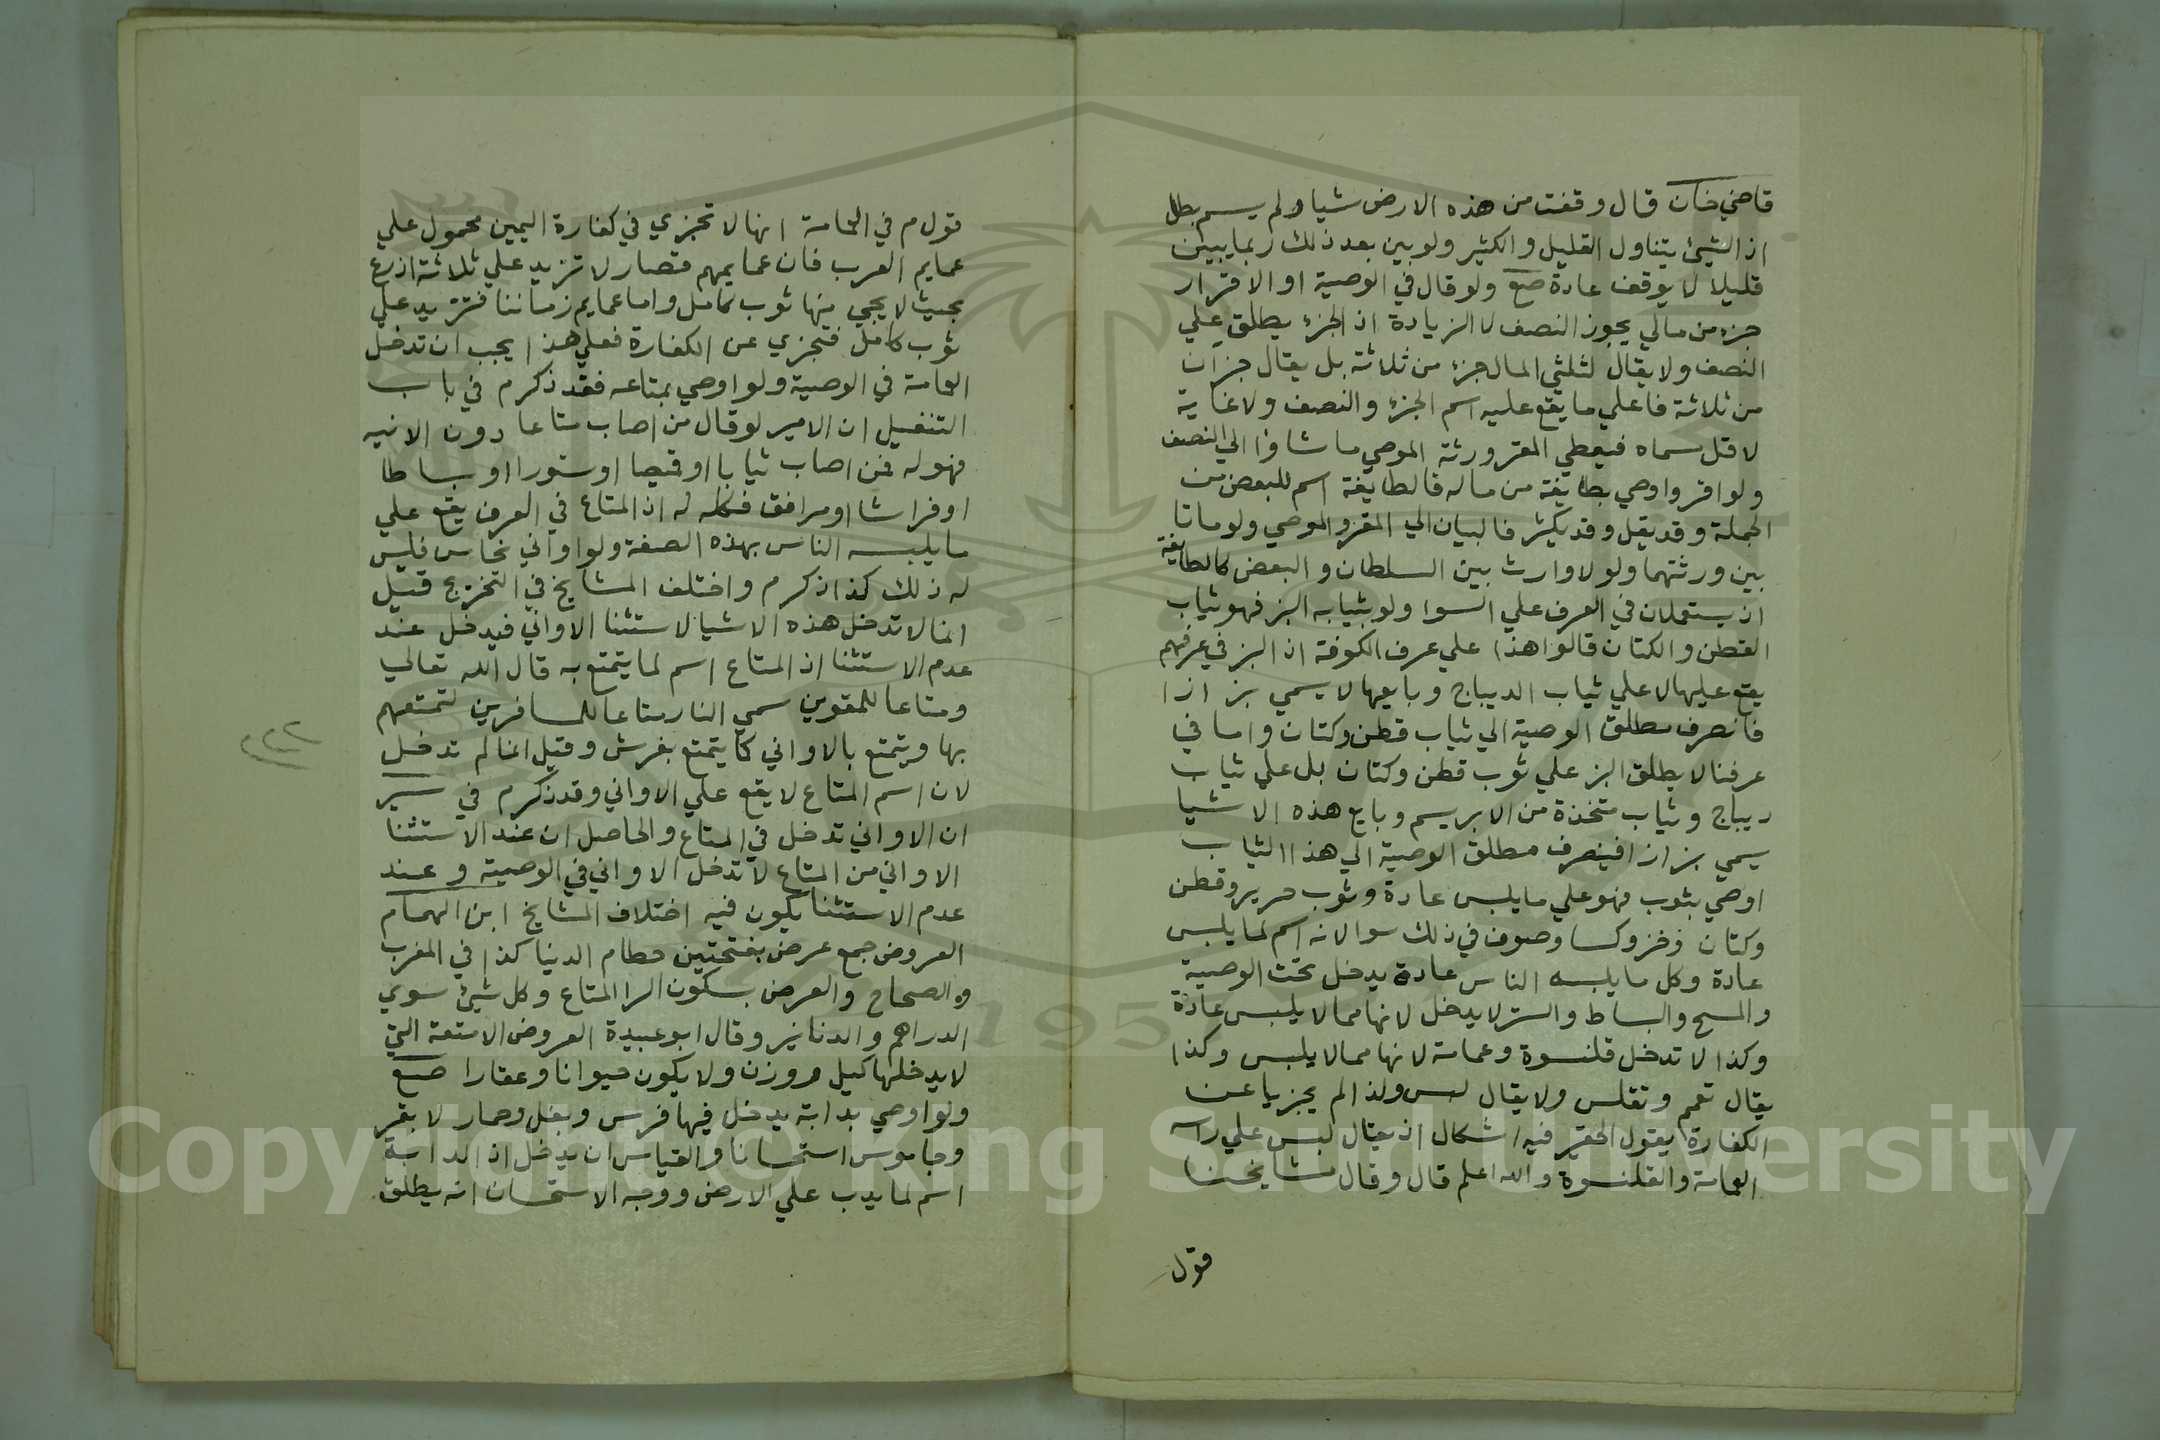 قاضي خان قال وقفت من هذه الارض شيا ولم يسم بطل
اذ الشيئ يتناول القليل والكثير ولو بين بعد ذلك ربما يبين
قليلا لا يوقف عادة صع ولو قال في الوصية او الاقرار
جزء من مالي يجوز النصف لا الزيادة اذ الجزء يطلق علي
النصف ولا يقال لثلثي المال جزء من ثلاثة بل يقال جزان
من ثلاثة فاعلي ما يقع عليه اسم الجزء والنصف ولا غاية
لاقل سماه فيعطي المقر ورثة الموصي ما شاؤا الي النصف
ولو اقر واوصي بطايفة من ماله فالطايفة اسم للبعض من
الجملة وقد يقل وقد يكثر فالبيان الي المقر والموصي ولو ماتا
بين ورثتهما ولو لا وارث بين السلطان والبعض كالطايفة
اذ يستعملان في العرف علي السوا ولو بثيابه البز فهو ثياب
القطن والكتان قالوا هذا علي عرف الكوفة اذ البز في عرفهم
يقع عليها لا علي ثياب الديباج وبايعها لا يسمي بزازا
فانصرف مطلق الوصية الي ثياب قطن وكتان واما في
عرفنا لا يطلق البز علي ثوب قطن وكتان بل علي ثياب
ديباج وثياب متخذة من الابريسم وبايع هذه الاشيا
يسمي بزازا فينصرف مطلق الوصية الي هذا الثياب
اوصي بثوب فهو علي ما يلبس عادة وثوب حرير وقطن
وكتان وخز وكسا وصوف في ذلك سوا لانه اسم لما يلبس
عادة وكل ما يلبسه الناس عادة يدخل تحت الوصية
والمسح والبساط والستر لا يدخل لانها مما لا يلبس عادة
وكذا لا تدخل قلنسوة وعمامة لانها مما لا يلبس وكذا
يقال تعمم وتقلس ولا يقال لبس ولذا لم يجزيا عن
الكفارة يقول الحقير فيه اشكال اذ يقال لبس علي راسه
العمامة والقلنسوة والله اعلم قال وقال مشايخنا
قول
قول م في العمامة انها لا تجزي في كفارة اليمين محمول علي
عمايم العرب فان عمايمهم قصار لا تزيد علي ثلاثة اذرع
بحيث لا يجي منها ثوب كامل واما عمايم زماننا فتزيد علي
ثوب كامل فتجزي عن الكفارة فعلي هذا يجب ان تدخل
العمامة في الوصية ولو اوصي بمتاعه فقد ذكر م في باب
التنفيل ان الامير لو قال من اصاب متاعا دون الانيه
فهو له فمن اصاب ثيابا او قميصا او ستورا او بساطا
او فراشا او مرافق فكله له اذ المتاع في العرف يقع علي
ما يلبسه الناس بهذه الصفة ولو اواني نحاس فليس
له ذلك كذا ذكر م واختلف المشايخ في التخريج قيل
انما لا تدخل هذه الاشيا لاستثنا الاواني فيدخل عند
عدم الاستثنا اذ المتاع اسم لما يتمتع به قال الله تعالي
ومتاعا للمقوين سمي النار متاعا للمسافرين لتمتعهم
بها ويتمتع بالاواني كما يتمتع بفرش وقيل انما لم تدخل
لان اسم المتاع لا يقع علي الاواني وقد ذكر م في سير
ان الاواني تدخل في المتاع والحاصل ان عند الاستثنا
الاواني من المتاع لا تدخل الاواني في الوصية وعند
عدم الاستثنا يكون فيه اختلاف المشايخ ابن الهمام
العروض جمع عرض بفتحتين حطام الدنيا كذا في المغرب
والصحاح والعرض بسكون الرا المتاع وكل شيئ سوي
الدراهم والدنانير وقال ابو عبيدة العروض الامتعة التي
لا يدخلها كيل ووزن ولا يكون حيوانا وعقارا صع
ولو اوصي بدابته يدخل فيها فرس وبغل وحمار لا بقر
وجاموس استحسانا والقياس ان يدخل اذ الدابة
اسم لما يدب علي الارض ووجه الاستحسان انه يطلق
Copyright © King Saud University
195